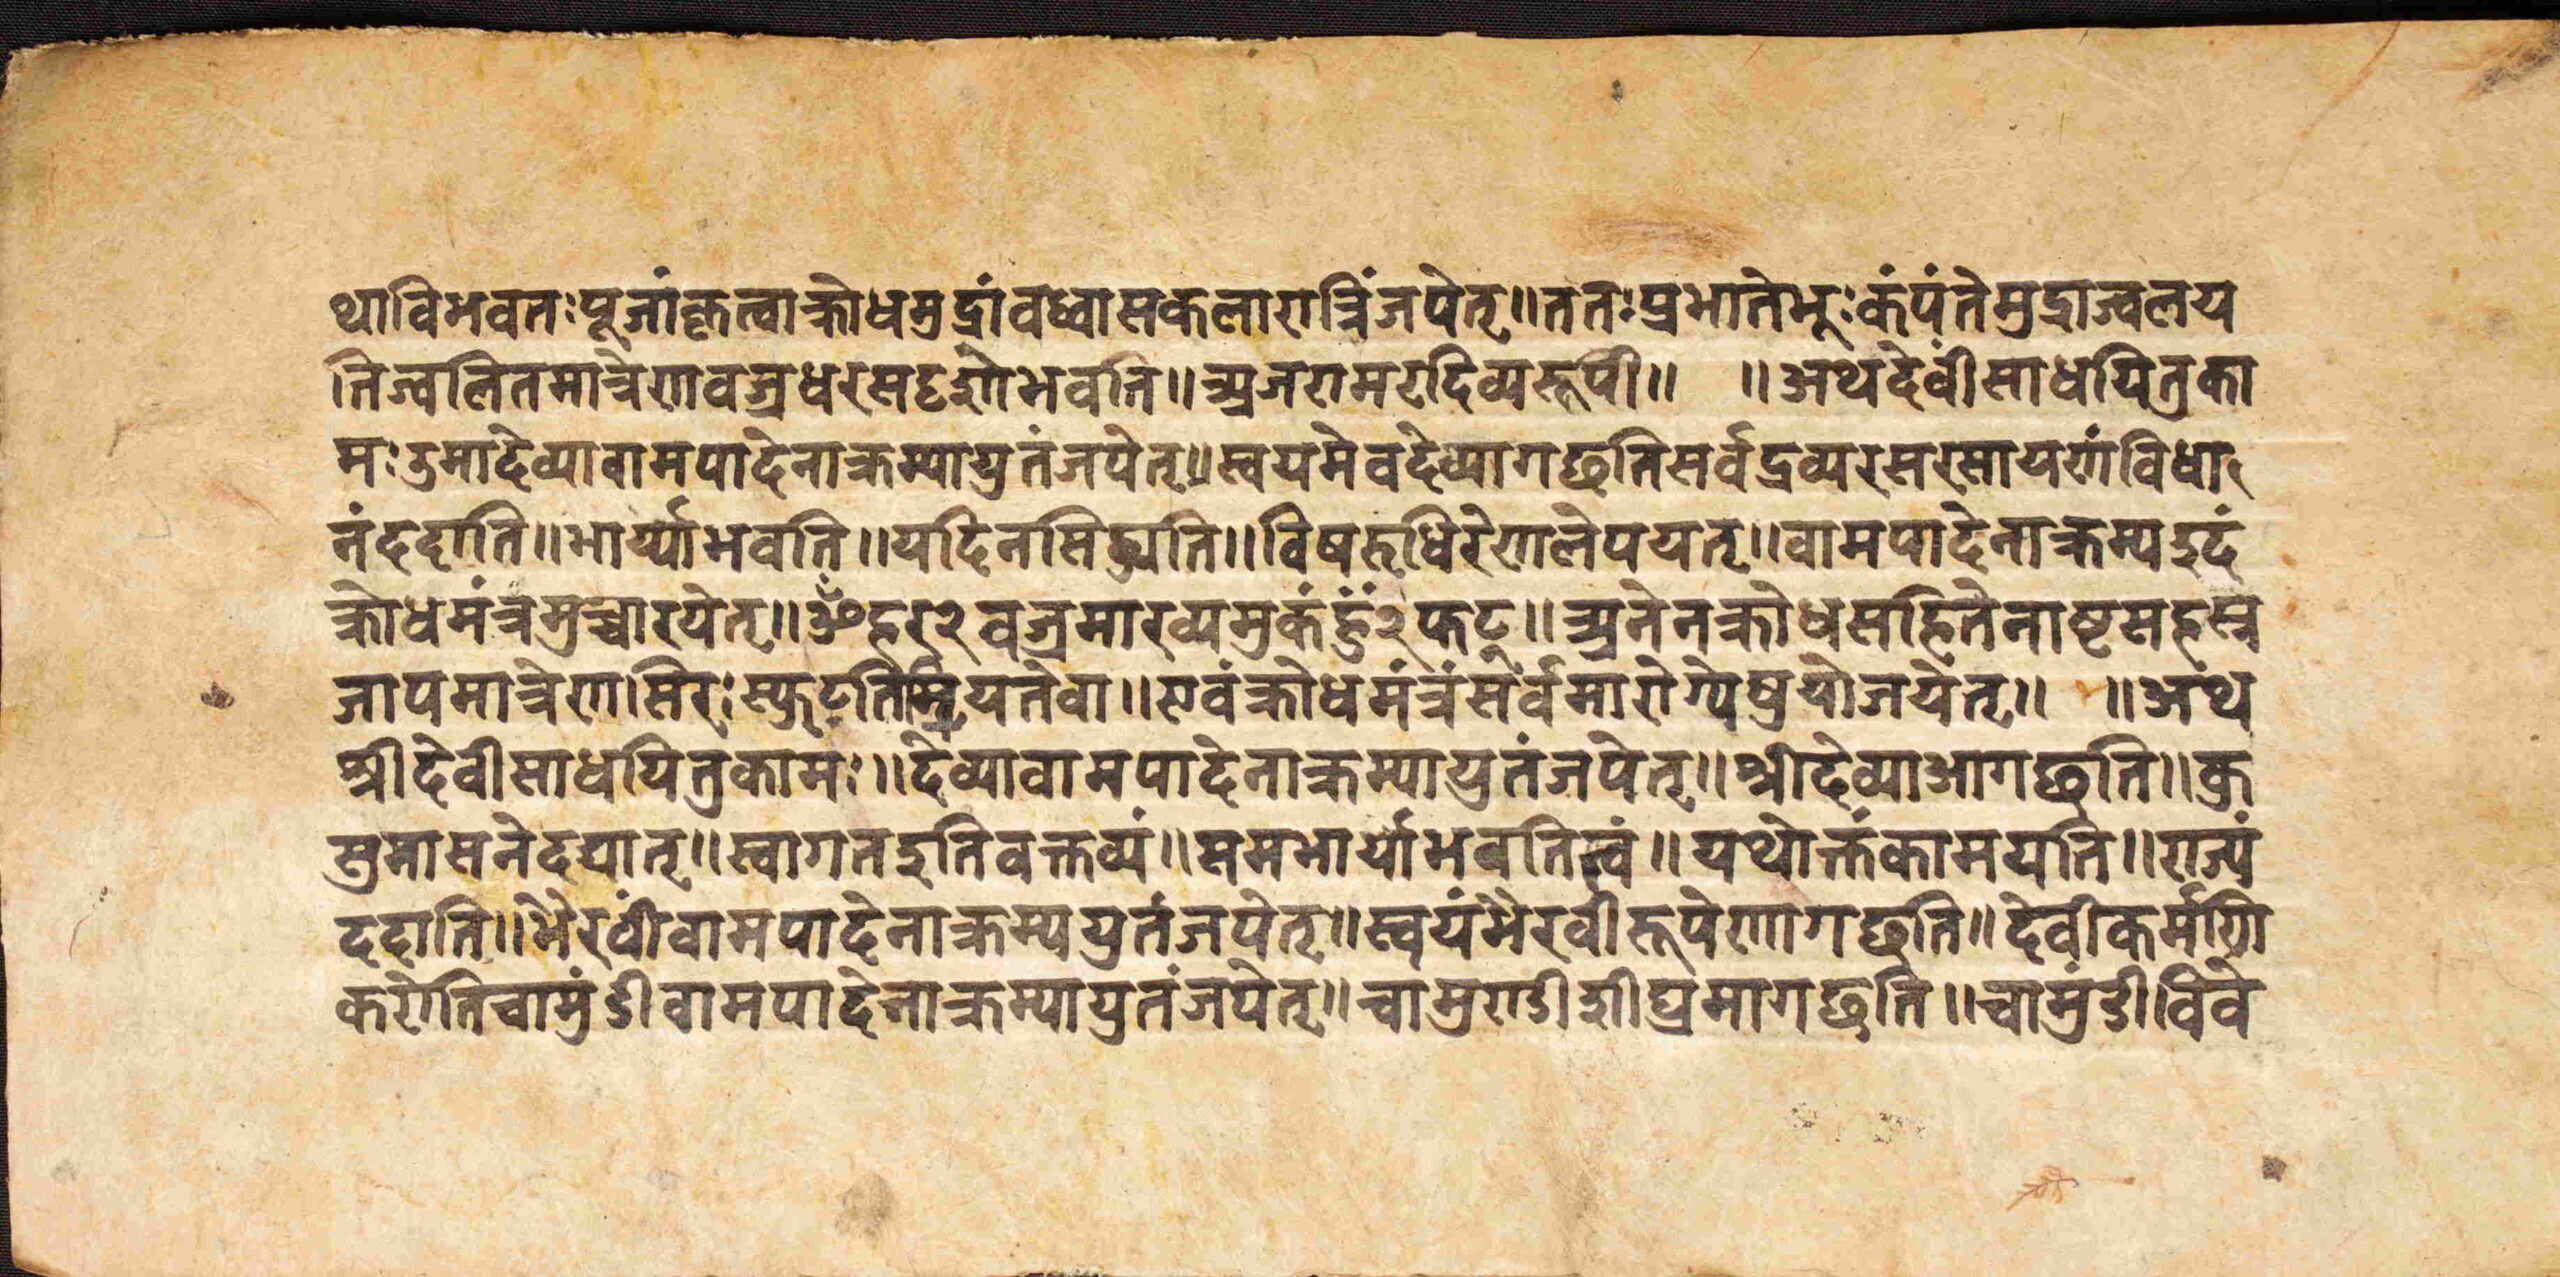 थाविभवतःपूजांकृत्वाक्रोधमुद्रांवध्वासकलारात्रिंजपेत्॥ततःप्रभातेभूःकंपंतेमुद्राज्वलय
तिज्वलितमात्रेणवज्रधरसदृशोभवति॥अजरामरदिव्यरूपी॥ ॥अथदेवींसाधयितुका
मःउमादेव्यावामपादेनाक्रम्यायुतंजपेत्॥स्वयमेवदेव्यागछतिसर्वद्रव्यरसरसायणंविधा
नंददाति॥भार्य्याभवति॥यदिनसिद्ध्यति॥विषरुधिरेणालेपयत्॥वामपादेनाक्रम्यइदं
क्रोधमंत्रमुच्चारयेत्॥ॐहर२वज्रमारव्यमुकंहुं२फट्॥अनेनक्रोधसहितेनाष्टसहस्र
जापमात्रेणसिरःस्फुटतिम्रियतेवा॥एवंक्रोधमंत्रंसर्वमारोग्येषुयोजयेत्॥ ॥अथ
श्रीदेवीसाधयितुकामः॥देव्यावामपादेनाक्रम्यायुतंजपेत्॥श्रीदेव्याआगछति॥कु
सुमासनेदद्यात्॥स्वागतइतिवक्तव्यं॥ममभार्याभवतित्वं॥यथोक्तंकामयति॥राज्यं
ददाति॥भैरवींवामपादेनाक्रम्ययुतंजपेत्॥स्वयंभैरवीरूपेणागछति॥देवीकर्माणि
करोतिचामुंडीवामपादेनाक्रम्यायुतंजपेत्॥चामुण्डीशीघ्रमागछति॥चामुंडीविवे